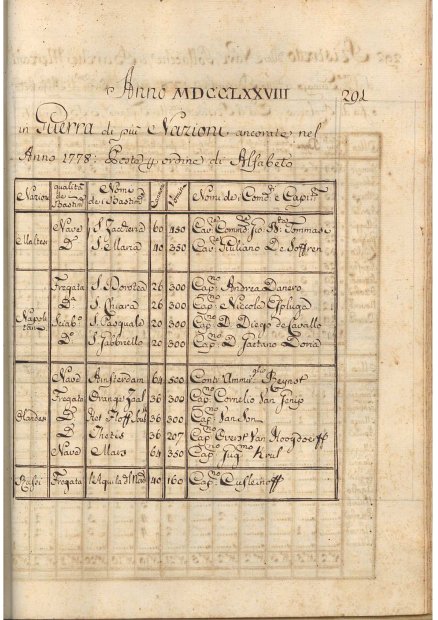 Anno MDCCLXXVIII 291
in Guerra di più Nazioni ancorate nel
Anno 1778: Posta p ordine di Alfabeto
Nazioni qualità de Bastim.ti Nomi de i Bastim.ti Cannoni Nomi de Com.ti e Capit.ni
Maltesi Nave S. Zaccaria 60 450 Cav. Comm. Tommasi
D.a S. Maria 40 350 Cav. Giuliano De Soffren
Napolitani Fregata S. Dorotea 26 300 Cap.no Andrea Danero
D.a S. Chiara 26 300 Cap.no Niccola Espluga
Sciab.o S. Pasquale 20 300 Cap.no D. Diego de Cavallo
D.o S. Gabbriello 20 300 Cap.no D. Gaetano Doria
Olandesi Nave Amsterdam 64 500 Cont. Ammir.glio Reynst
Fregata Orange Zaal 36 300 Cap.no Cornelio Van
D.a 36 300 Cap.no Van Son
D.a Thetis 36 207 Cap.no Evert Van Hoogdorff
Nave Mars 64 350 Cap.no Jug.mo Krul
Russi Fregata l'Aquila d'Nord 40 160 Cap.no